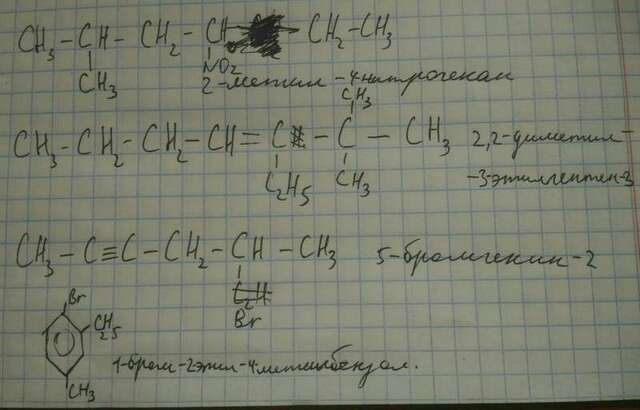 CH3 - CH - CH2 - CH - CH2 - CH3
CH3 NO2
2-метил-4нитрогексан
CH3
CH3 - CH2 - CH2 - CH = C - C - CH3 2,2-диметил-
C2H5 CH3 -3-этилгептен-3
CH3 - C ≡ C - CH2 - CH - CH3 5-бромгексин-2
Br
Br
C2H5
CH3 1-бром-2этил-4метилбензол.